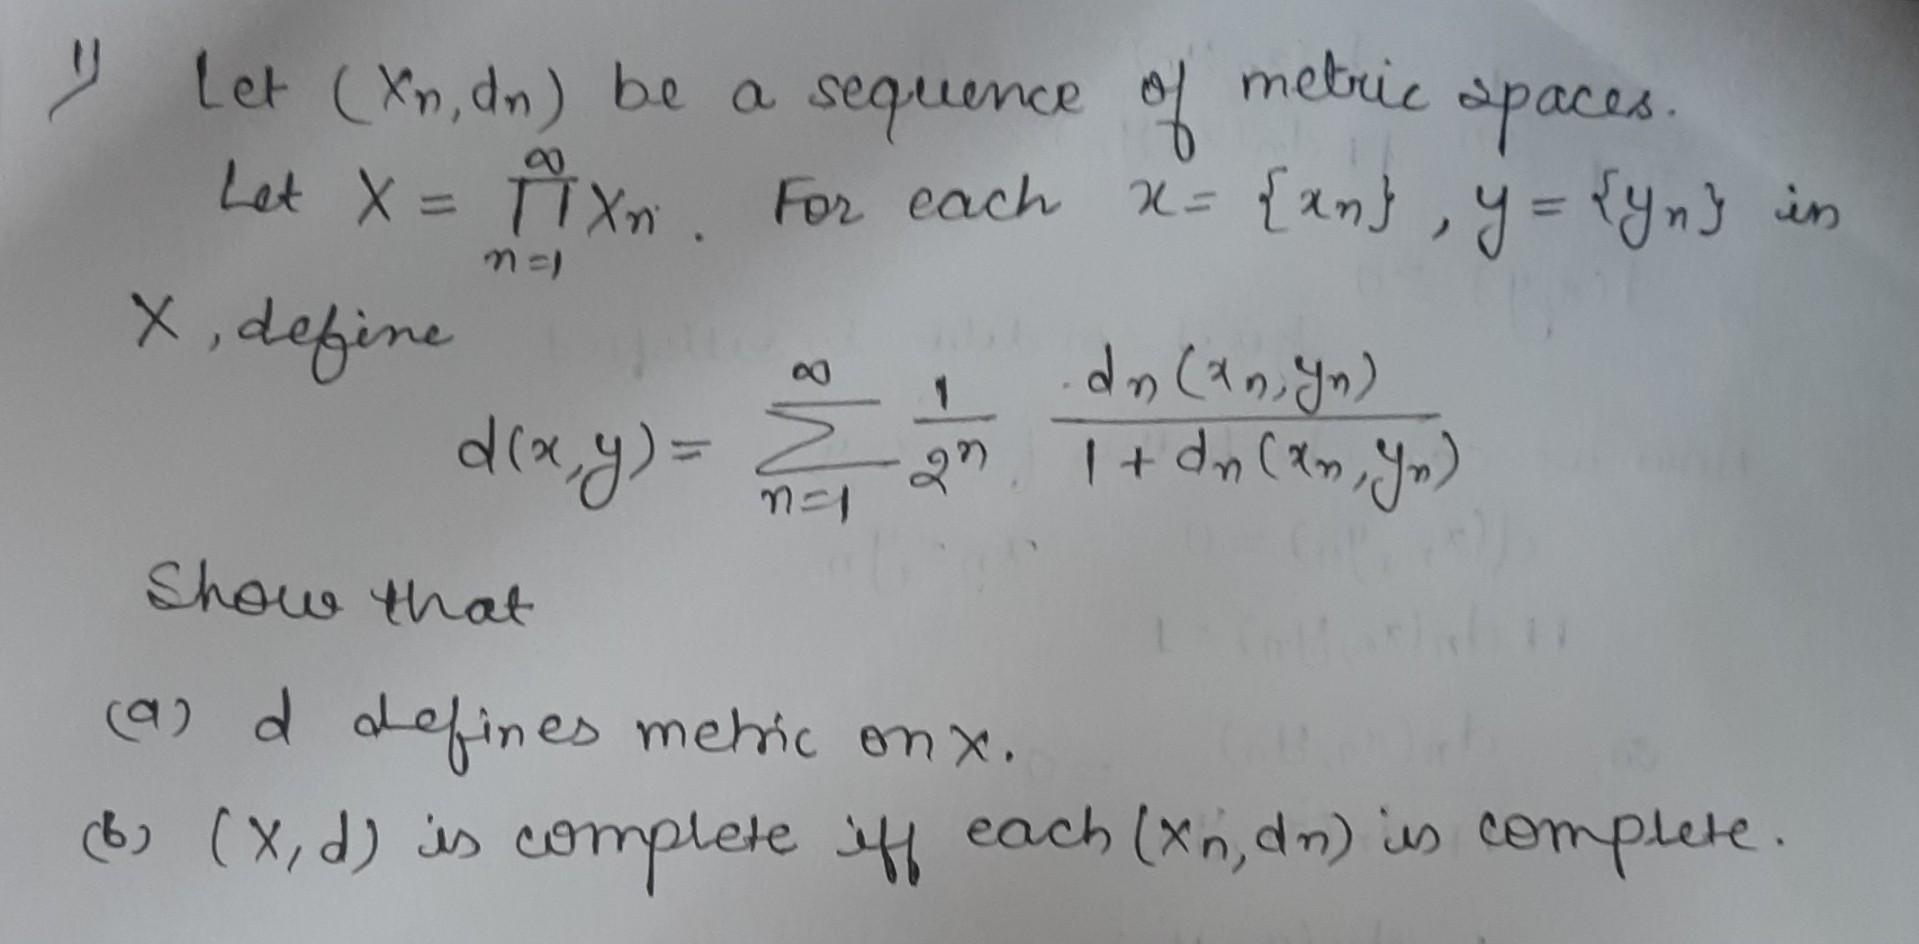 1) Let (Xn, dn) be a sequence of metric spaces.
Let X = ∏_{n=1}^{∞} Xn. For each x = {xn}, y = {yn} in
X, define
d(x,y) = ∑_{n=1}^{∞} 1/2^n dn(xn,yn)/(1+dn(xn,yn))
Show that
(a) d defines metric on X.
(b) (X,d) is complete iff each (Xn,dn) is complete.